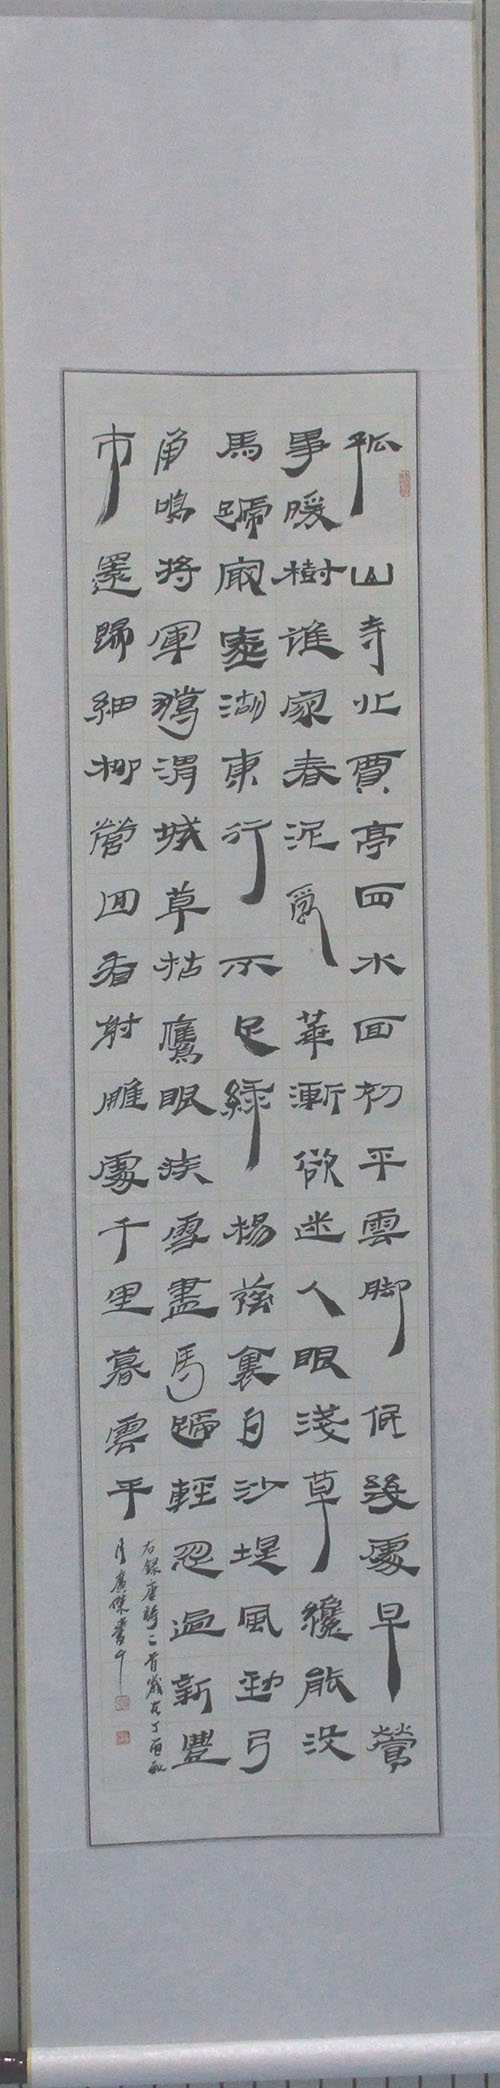 孤山寺北賈亭西水面初平雲脚低幾處早鶯
爭暖樹誰家春泥亂華漸欲迷人眼淺草纔能没
馬蹄最愛湖東行不足綠楊蔭裏白沙堤風勁弓
角鳴將軍獵渭城草枯鷹眼疾雪盡馬蹄輕忽過新豐
市還歸細柳營回看射雕處千里暮雲平
右錄唐詩二首歲在丁酉秋
月廣傑書于